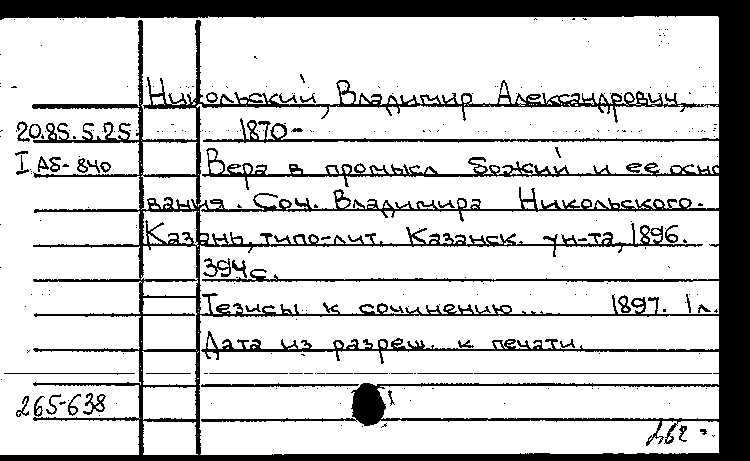 Никольский, Владимир Александрович,
20.85.5.25. 1870-
I АБ-840 Вера в промысл божий и ее осно
вания. Соч. Владимира Никольского.
Казань, типо-лит. Казанск. ун-та, 1896.
394с.
Тезисы к сочинению... 1897. 1л.
Дата из разреш. к печати.
265-638